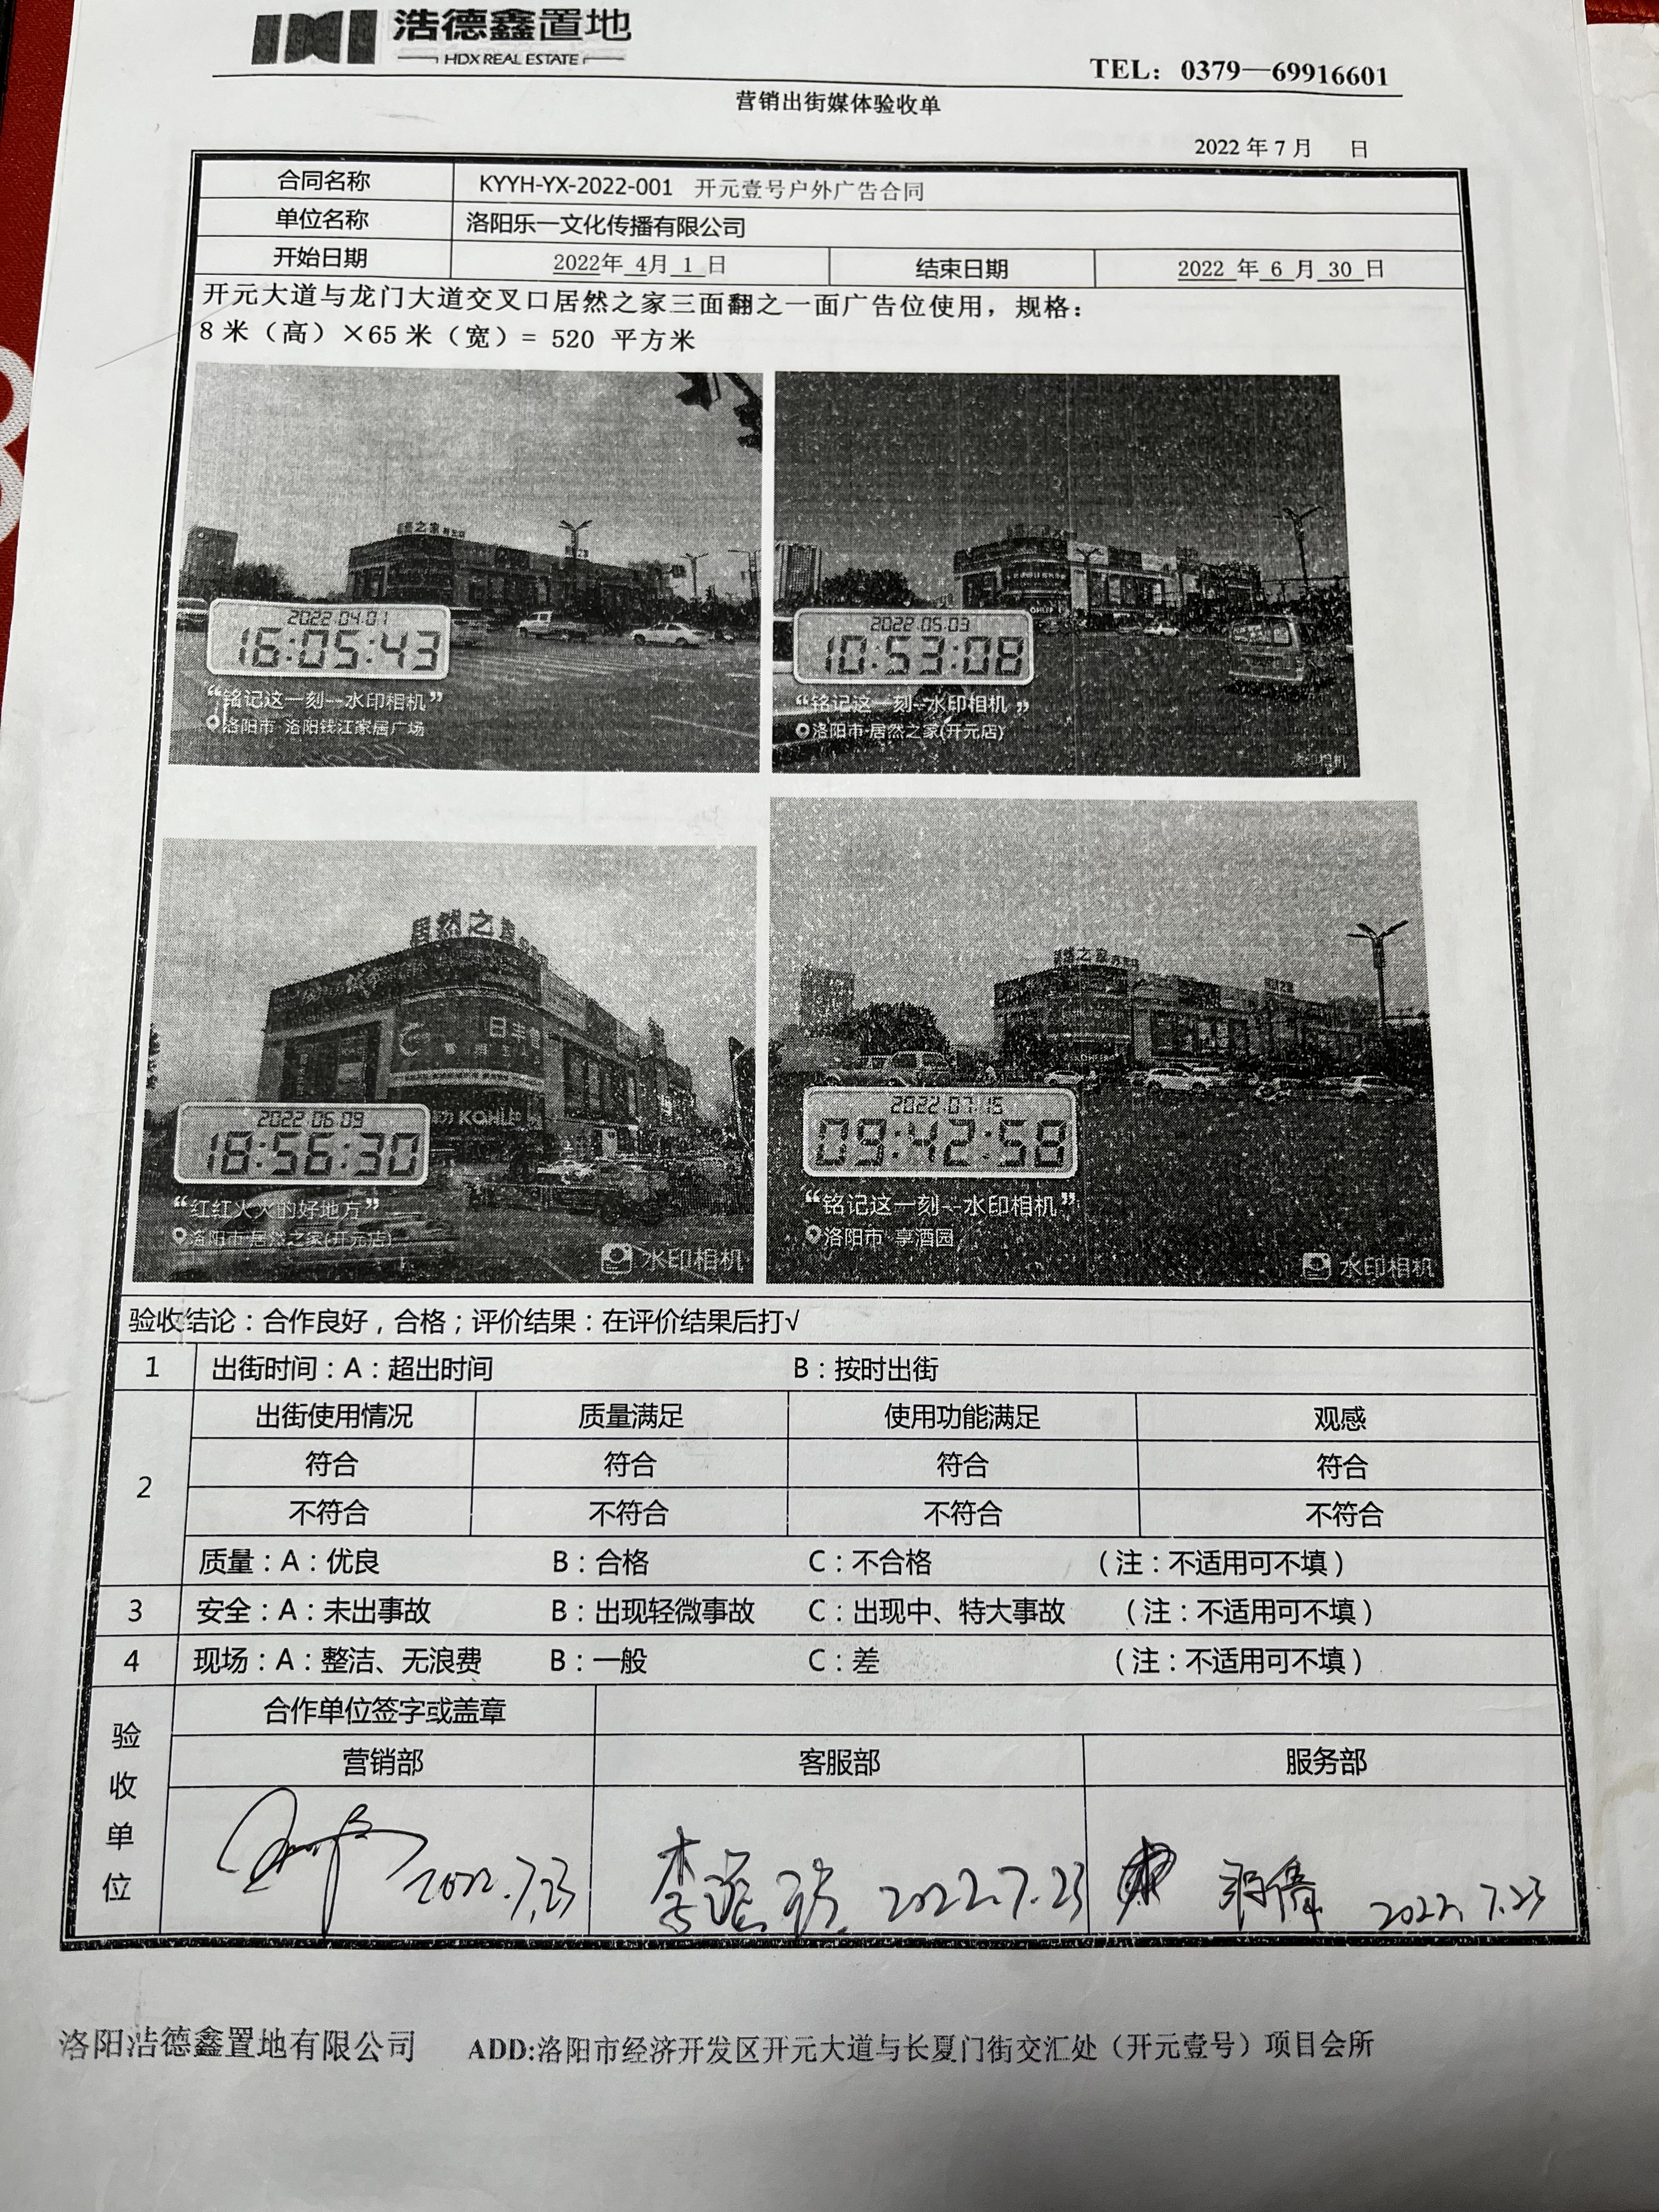 浩德鑫置地
HDX REAL ESTATE
TEL：0379—69916601
营销出街媒体验收单
2022 年 7 月 日
合同名称 KYYH-YX-2022-001 开元壹号户外广告合同
单位名称 洛阳乐一文化传播有限公司
开始日期 2022年 4月 1 日 结束日期 2022 年 6 月 30 日
开元大道与龙门大道交叉口居然之家三面翻之一面广告位使用，规格：
8 米（高）×65 米（宽）= 520 平方米
2022.04.01
16:05:43
“铭记这一刻--水印相机”
洛阳市·洛阳钱江家居广场
2022.05.03
10:53:08
“铭记这一刻--水印相机”
洛阳市·居然之家(开元店)
水印相机
居然之家
日丰管
KOHLER
2022.06.09
18:56:30
“红红火火的好地方”
洛阳市·居然之家(开元店)
水印相机
居然之家
2022.07.15
09:42:58
“铭记这一刻--水印相机”
洛阳市·享酒园
水印相机
验收结论：合作良好，合格；评价结果：在评价结果后打√
1 出街时间：A：超出时间 B：按时出街
2 出街使用情况 质量满足 使用功能满足 观感
符合 符合 符合 符合
不符合 不符合 不符合 不符合
质量：A：优良 B：合格 C：不合格 （注：不适用可不填）
3 安全：A：未出事故 B：出现轻微事故 C：出现中、特大事故 （注：不适用可不填）
4 现场：A：整洁、无浪费 B：一般 C：差 （注：不适用可不填）
验收单位 合作单位签字或盖章
营销部 客服部 服务部
2022.7.23 2022.7.23 2022.7.23
洛阳浩德鑫置地有限公司 ADD:洛阳市经济开发区开元大道与长夏门街交汇处（开元壹号）项目会所